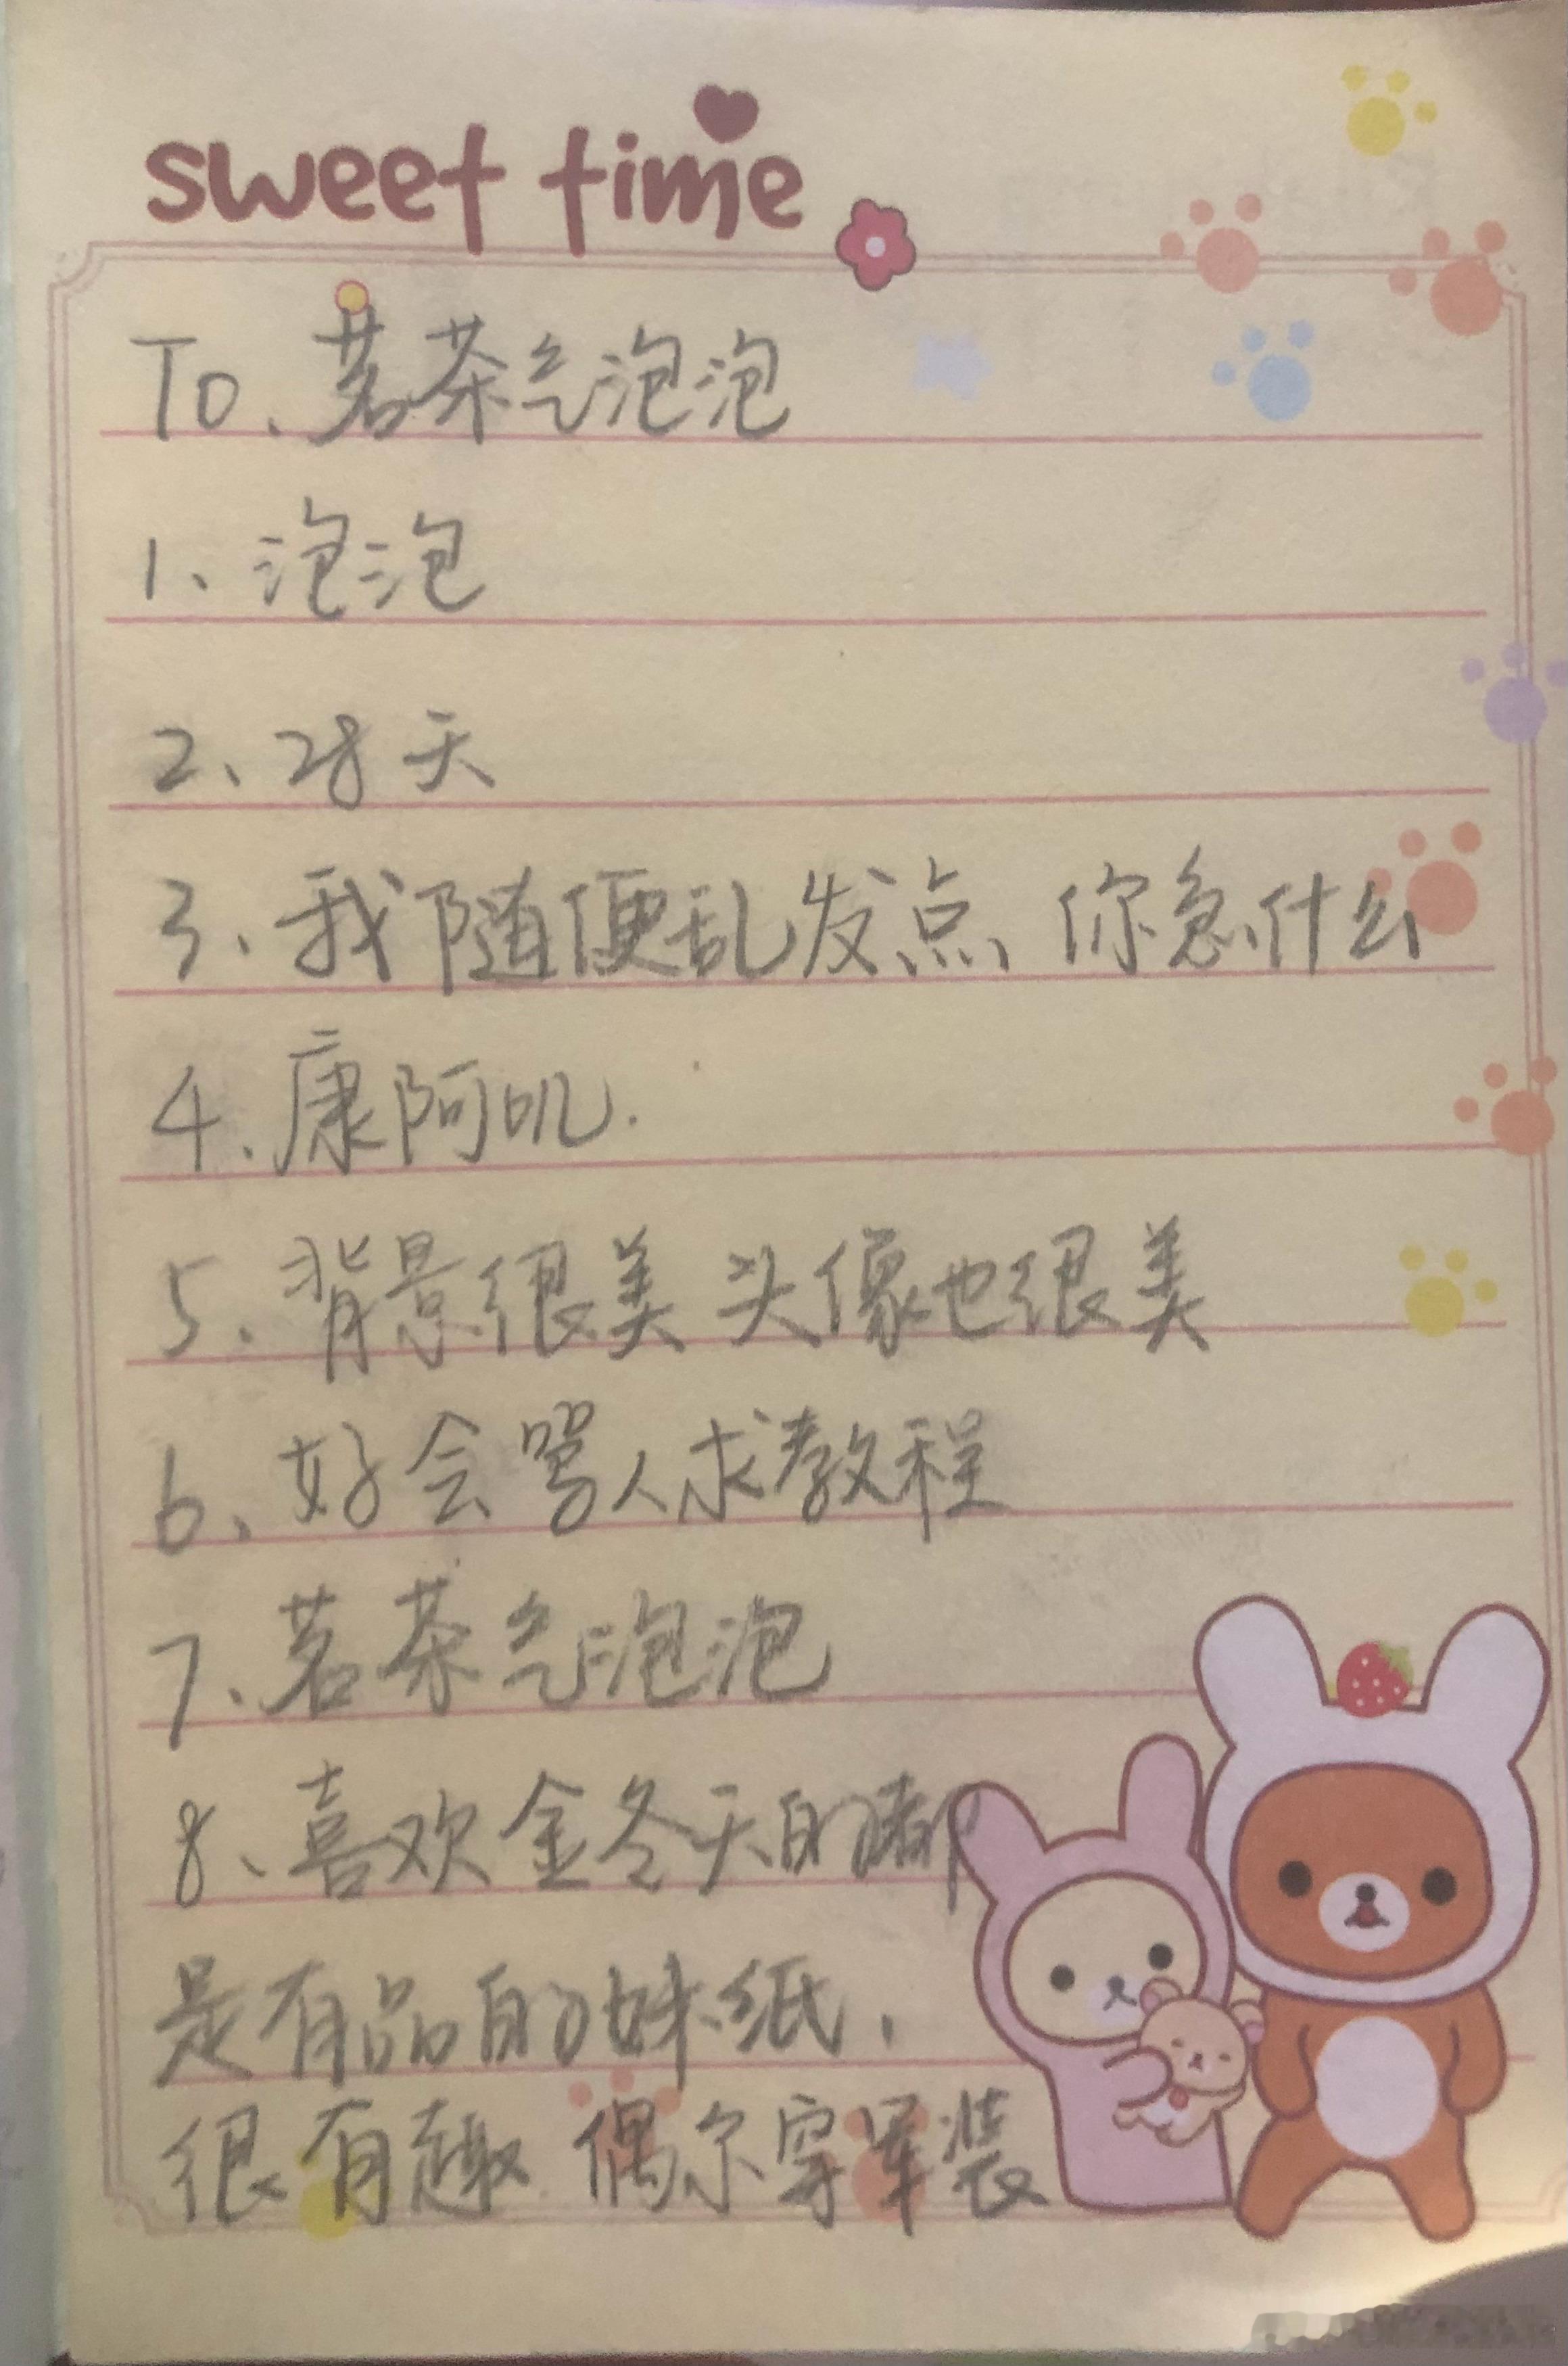 sweet time
To、茗茶气泡泡
1、泡泡
2、28天
3、我随便乱发点 你急什么
4、康阿叽.
5、背景很美 头像也很美
6、好会骂人求教程
7、茗茶气泡泡
8、喜欢金冬天的都
是有品的妹纸，
很有趣 偶尔穿军装